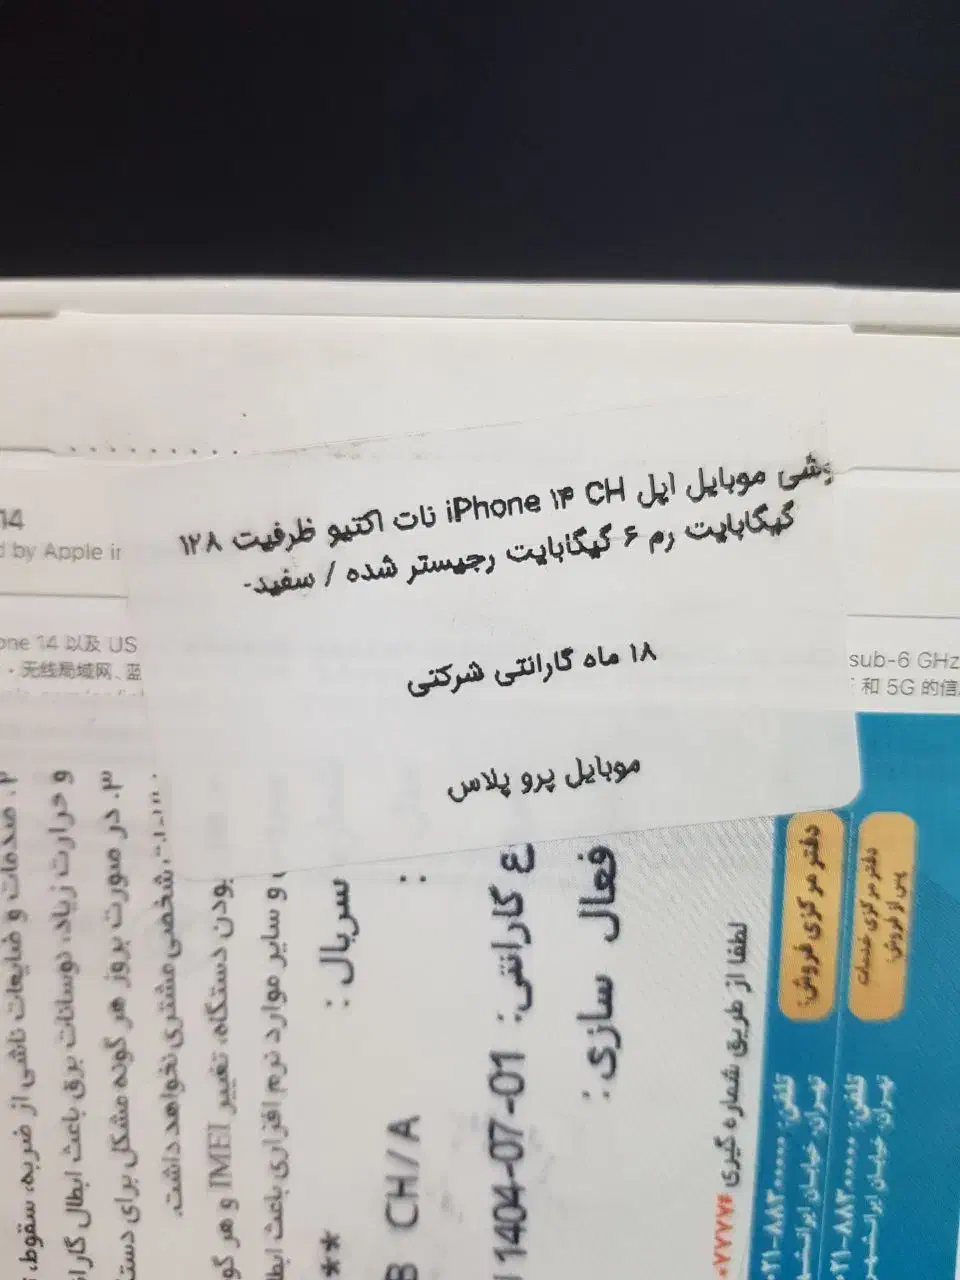 14
d by Apple in
one 14 以及 US
· 无线局域网、蓝
sub-6 GHz
和 5G 的信
وشی موبایل اپل iPhone ۱۴ CH نات اکتیو ظرفیت ۱۲۸
گیگابایت رم ۶ گیگابایت رجیستر شده / سفید-
۱۸ ماه گارانتی شرکتی
موبایل پرو پلاس
دفتر مرکزی خدمات
پس از فروش
تلفن: ۰۲۱-۸۸۳۰۰۰۰۰
تهران، خیابان ایرانشهر
دفتر مرکزی فروش:
تلفن: ۰۲۱-۸۸۳۰۰۰۰۰
تهران، خیابان ایرانشهر
لطفا از طریق شماره گیری #۰۷۷۷
فعال سازی :
ع گارانتی: 1404-07-01
: B CH/A
سریال : **
و سایر موارد نرم افزاری باعث ابطا
بودن دستگاه، تغییر IMEI و هر گو
شخصی مشتری نخواهد داشت.
۳. در صورت بروز هر گونه مشکل برای دست
و حرارت زیاد، نوسانات برق باعث ابطال گارا
۲. صدمات و ضایعات ناشی از ضربه، سقوط،